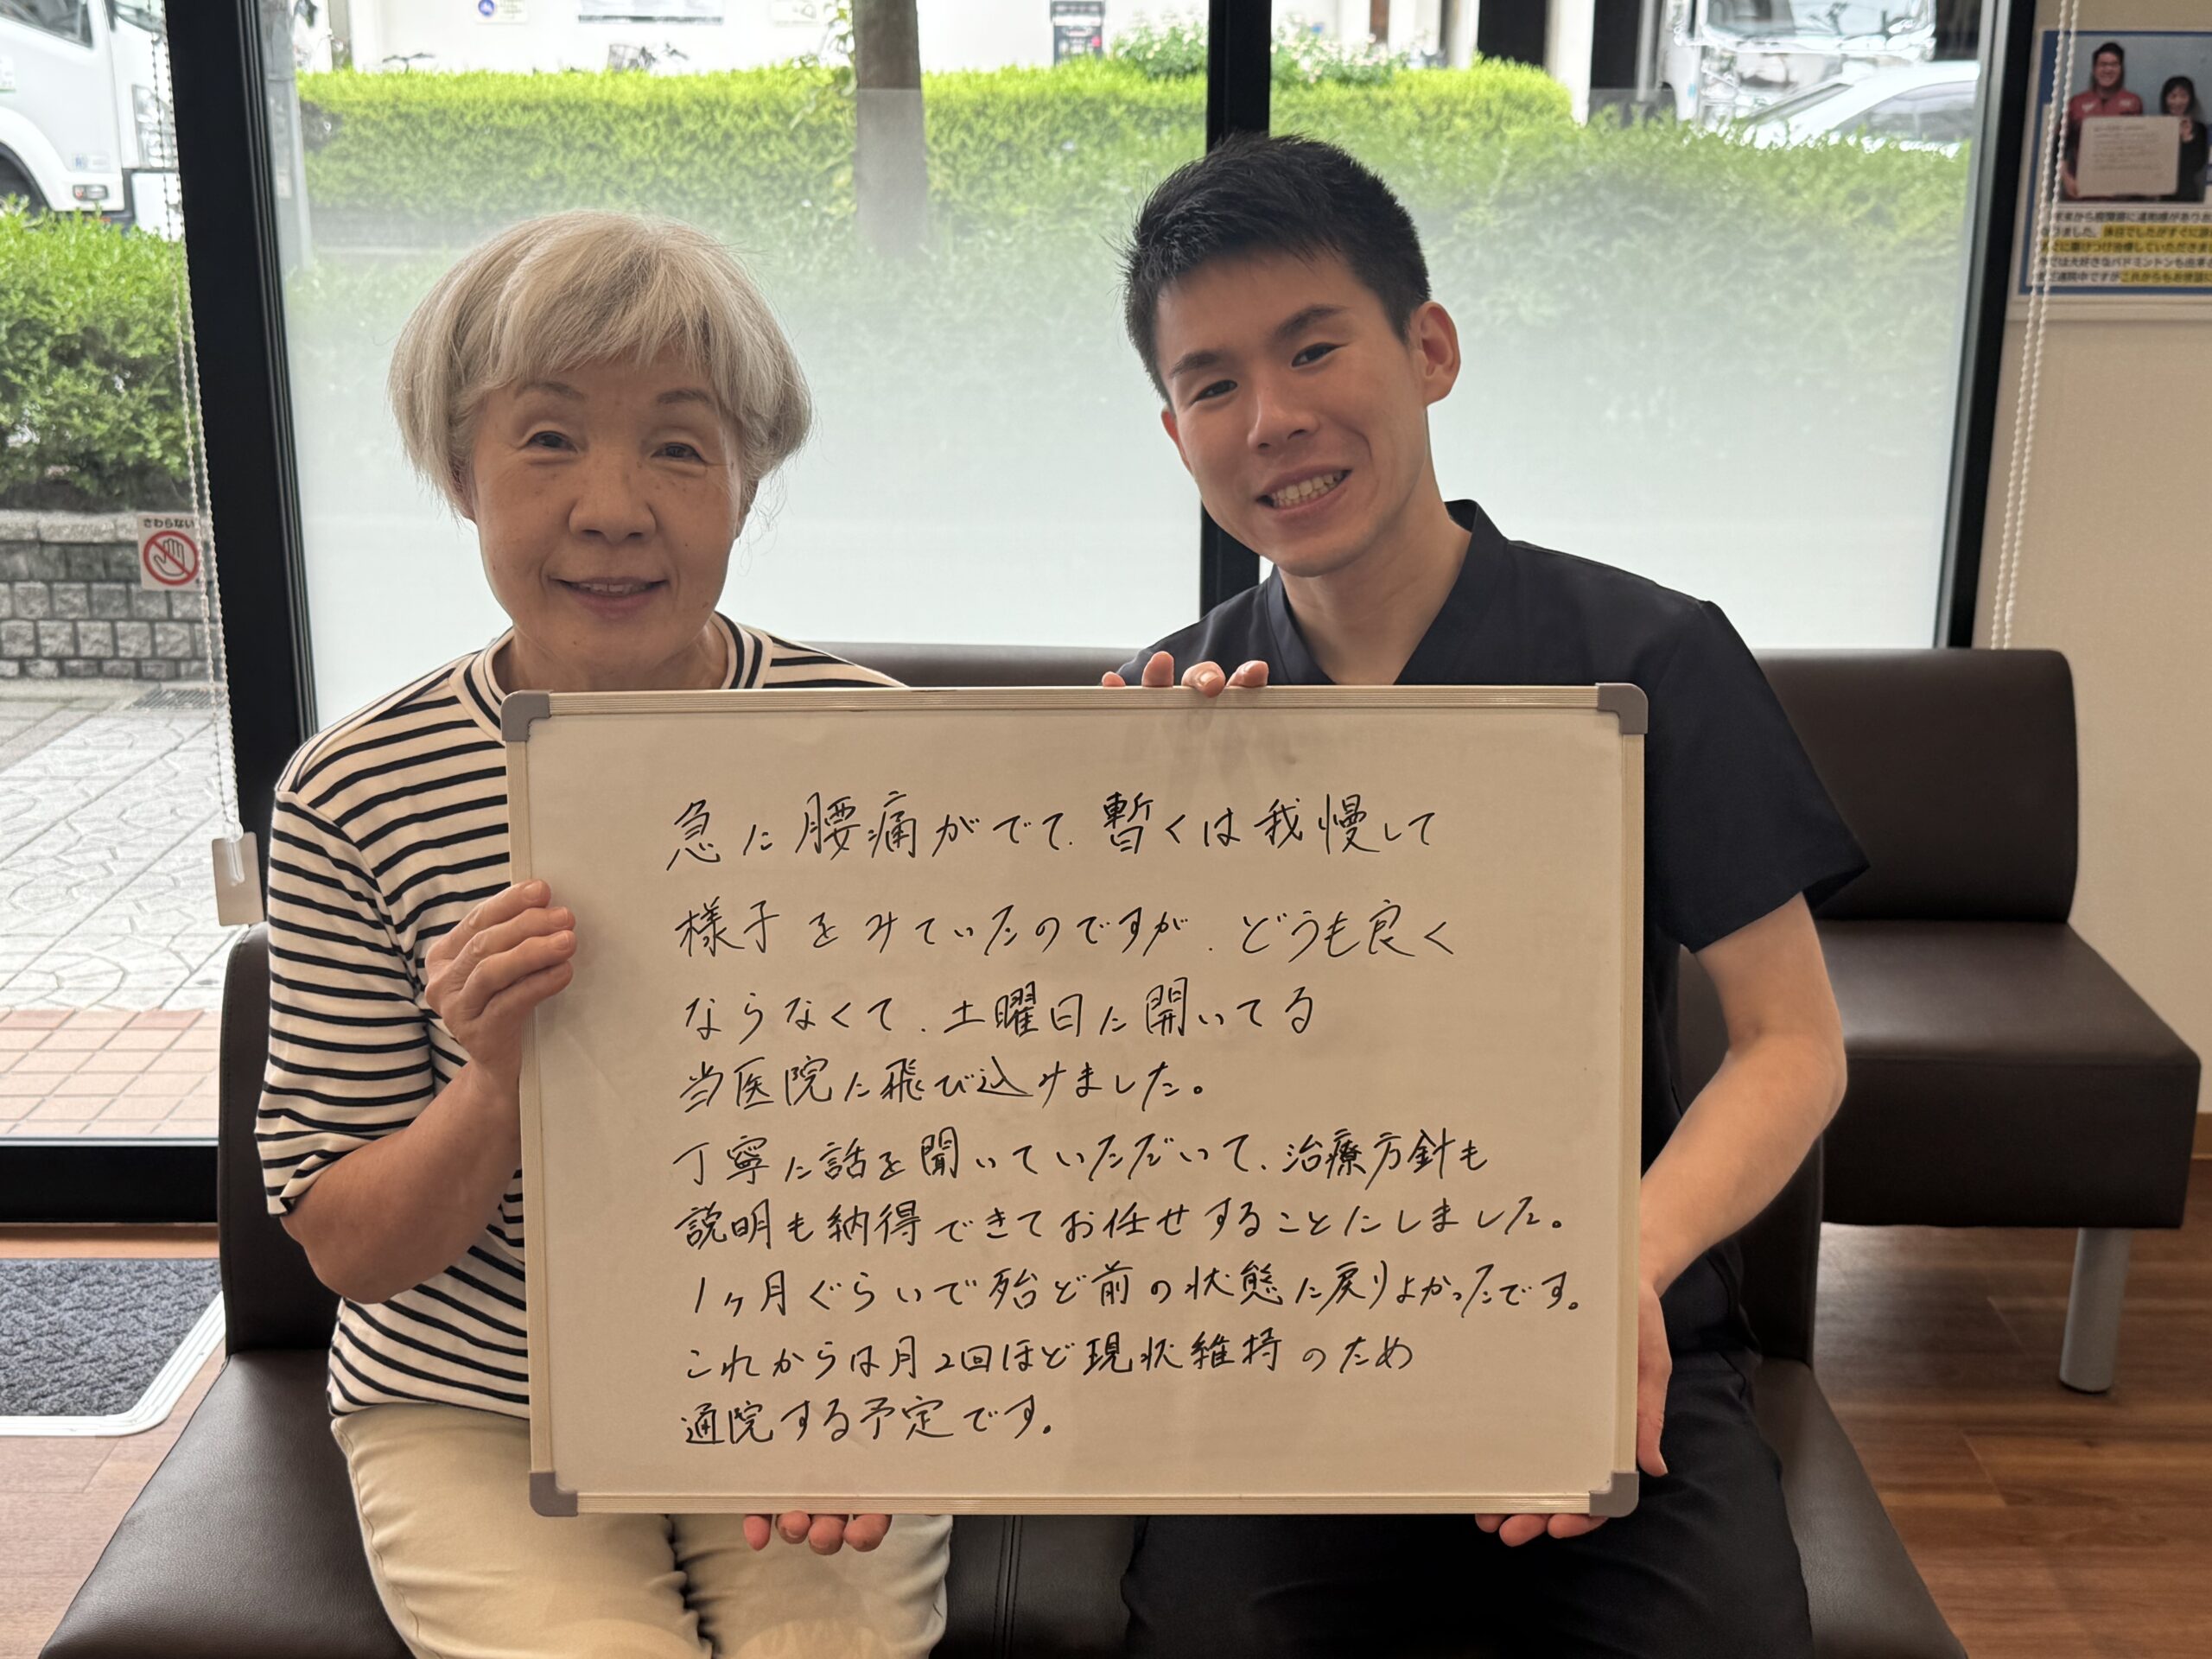 急に腰痛がでて、暫くは我慢して
様子をみていたのですが、どうも良く
ならなくて、土曜日に開いてる
当医院に飛び込みました。
丁寧に話を聞いていただいて、治療方針も
説明も納得できてお任せすることにしました。
1ヶ月ぐらいで殆ど前の状態に戻りよかったです。
これからは月2回ほど現状維持のため
通院する予定です。
さわらない